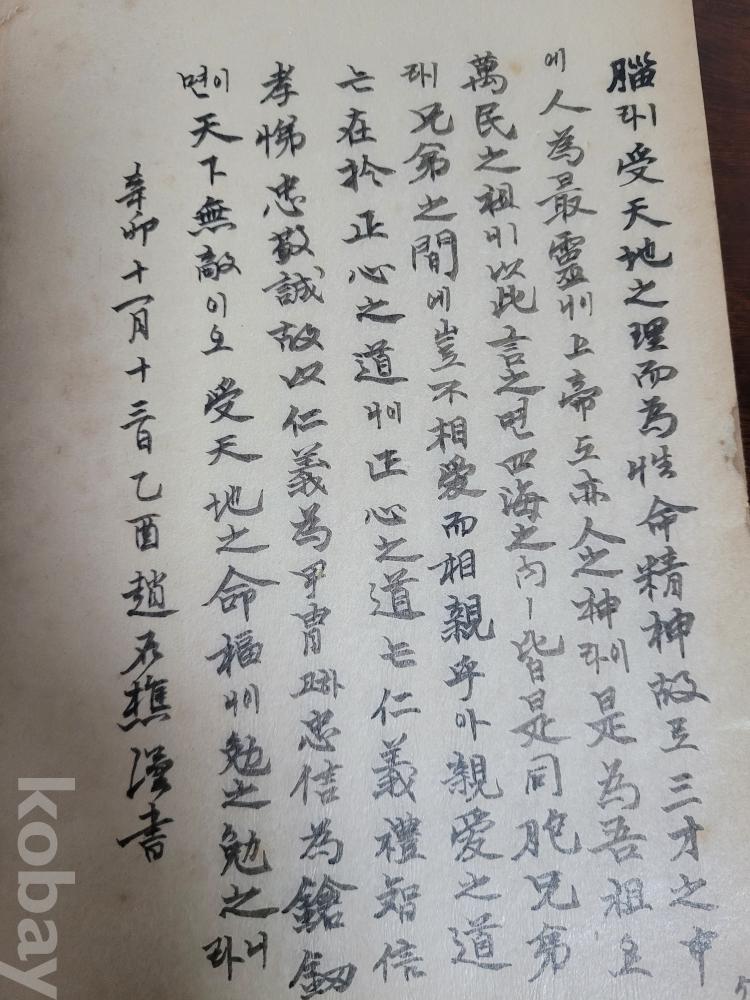 腦라니 受天地之理而為性命精神故로 三才之中
에 人為最靈하니 上帝도 亦人之神이라 是為吾祖오
萬民之祖니 以此言之면 四海之內ㅣ 皆是同胞兄弟
라 兄弟之間에 豈不相愛而相親乎아 親愛之道
는 在於正心之道하니 正心之道는 仁義禮智信
孝悌忠敬誠故以仁義為甲冑하고 忠信為鎗釰
이면 天下無敵이오 受天地之命福하니 勉之勉之
니라
辛卯十一月十三日乙酉趙石樵謹書
kobay